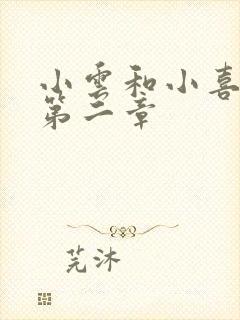 小雲和小喜
第二章
芫沐